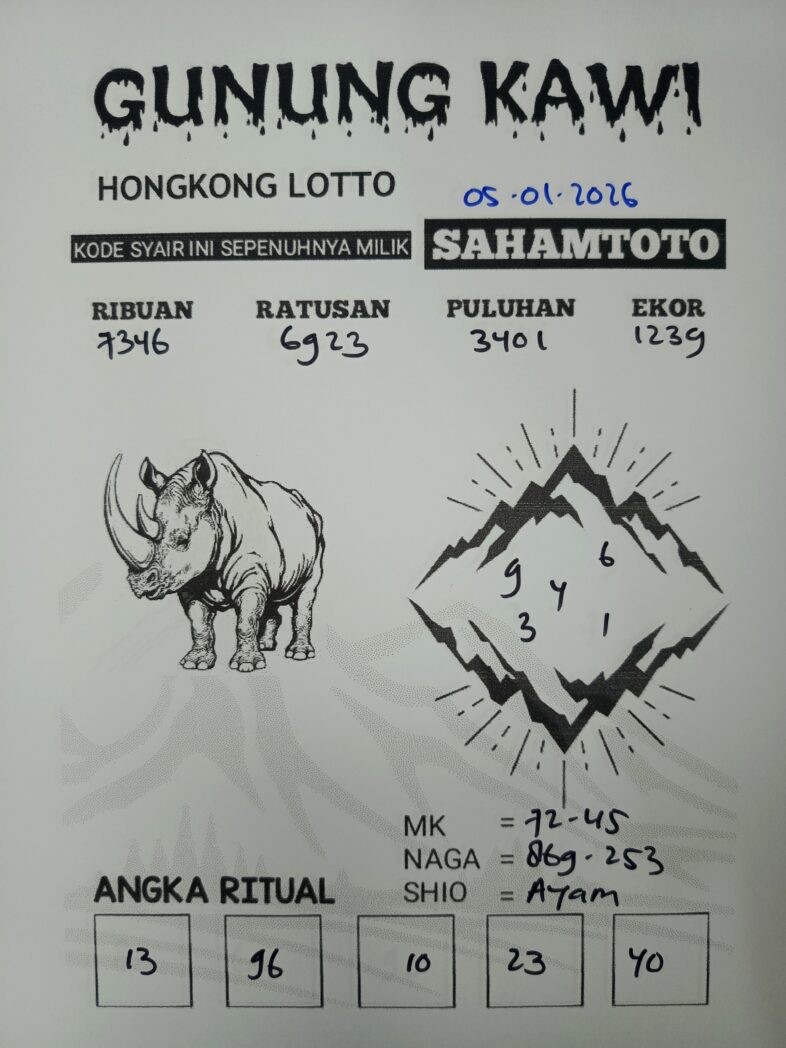 GUNUNG KAWI
HONGKONG LOTTO 05.01.2026
KODE SYAIR INI SEPENUHNYA MILIK SAHAMTOTO
RIBUAN RATUSAN PULUHAN EKOR
7346 6923 3401 1239
9 6
4
3 1
MK = 72-45
NAGA = 869-253
SHIO = Ayam
ANGKA RITUAL
13 96 10 23 40